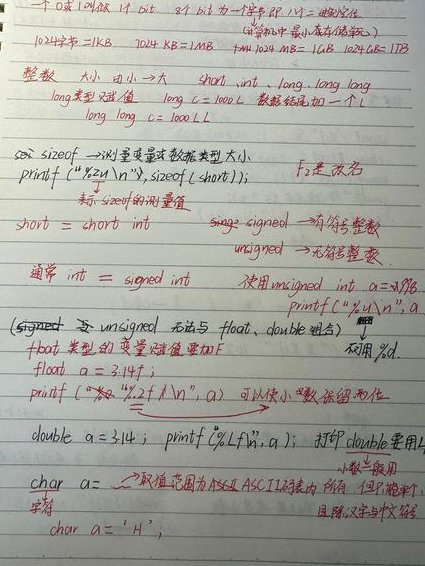 一个0或1叫做1个bit 8个bit为一个字节即八个二进制定位
(计算机中最小存储单元)
1024字节=1KB 1024KB=1MB 1024MB=1GB 1024GB=1TB
整数 大小 由小→大 short、int、long、long long
long类型赋值 long c=1000L 数据结尾加一个L
long long c=1000LL
sizeof→测量变量或数据类型大小
printf("%zu\n"),sizeof(short)); F2是改名
表示sizeof的测量值
short = short int signed→有符号整数
unsigned→无符号整数
通常 int = signed int 使用unsigned int a=
printf("%u\n",a
(unsigned 无法与float、double组合)
不用%d.
float类型的变量赋值要加F
float a=3.14f;
printf("%.2f\n",a) 可以使小数保留两位
double a=3.14; printf("%Lf\n",a); 打印double要用L
小数一般用
char a= →取值范围为ASCII码表内所有 但只能单个,
字符 且除汉字与中文符号
char a='H';